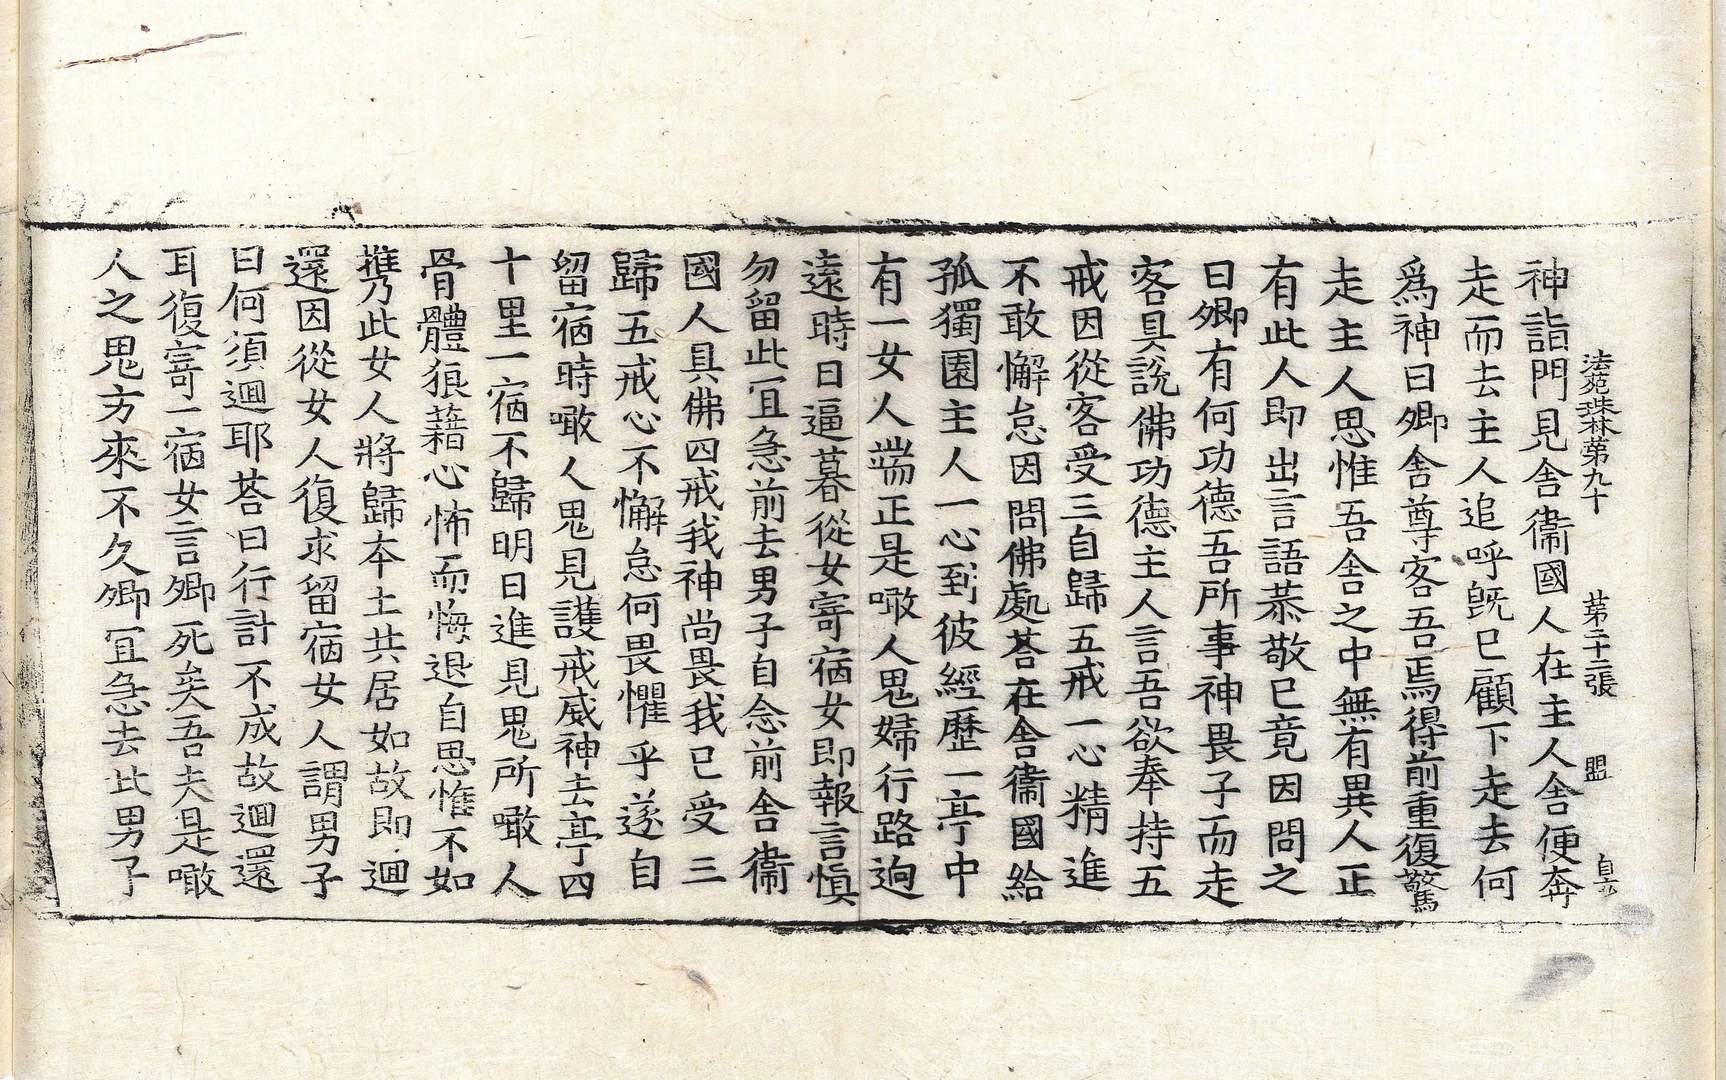 法苑珠林第九十 第二十二張 盟
神詣門見舍衞國人在主人舍便奔
走而去主人追呼旣已顧下走去何
爲神曰卿舍尊客吾焉得前重復驚
走主人思惟吾舍之中無有異人正
有此人即出言語恭敬已竟因問之
曰卿有何功德吾所事神畏子而走
客具說佛功德主人言吾欲奉持五
戒因從客受三自歸五戒一心精進
不敢懈怠因問佛處荅在舍衞國給
孤獨園主人一心到彼經歷一亭中
有一女人端正是噉人鬼婦行路逈
遠時日逼暮從女寄宿女即報言愼
勿留此冝急前去男子自念前舍衞
國人具佛四戒我神尚畏我已受三
歸五戒心不懈怠何畏懼乎遂自
留宿時噉人鬼見護戒威神去亭四
十里一宿不歸明日進見鬼所噉人
骨體狼藉心怖而悔退自思惟不如
携此女人將歸本土共居如故即迴
還因從女人復求留宿女人謂男子
曰何須迴耶荅曰行計不成故迴還
耳復寄一宿女言卿死矣吾夫是噉
人之鬼方來不久卿冝急去此男子